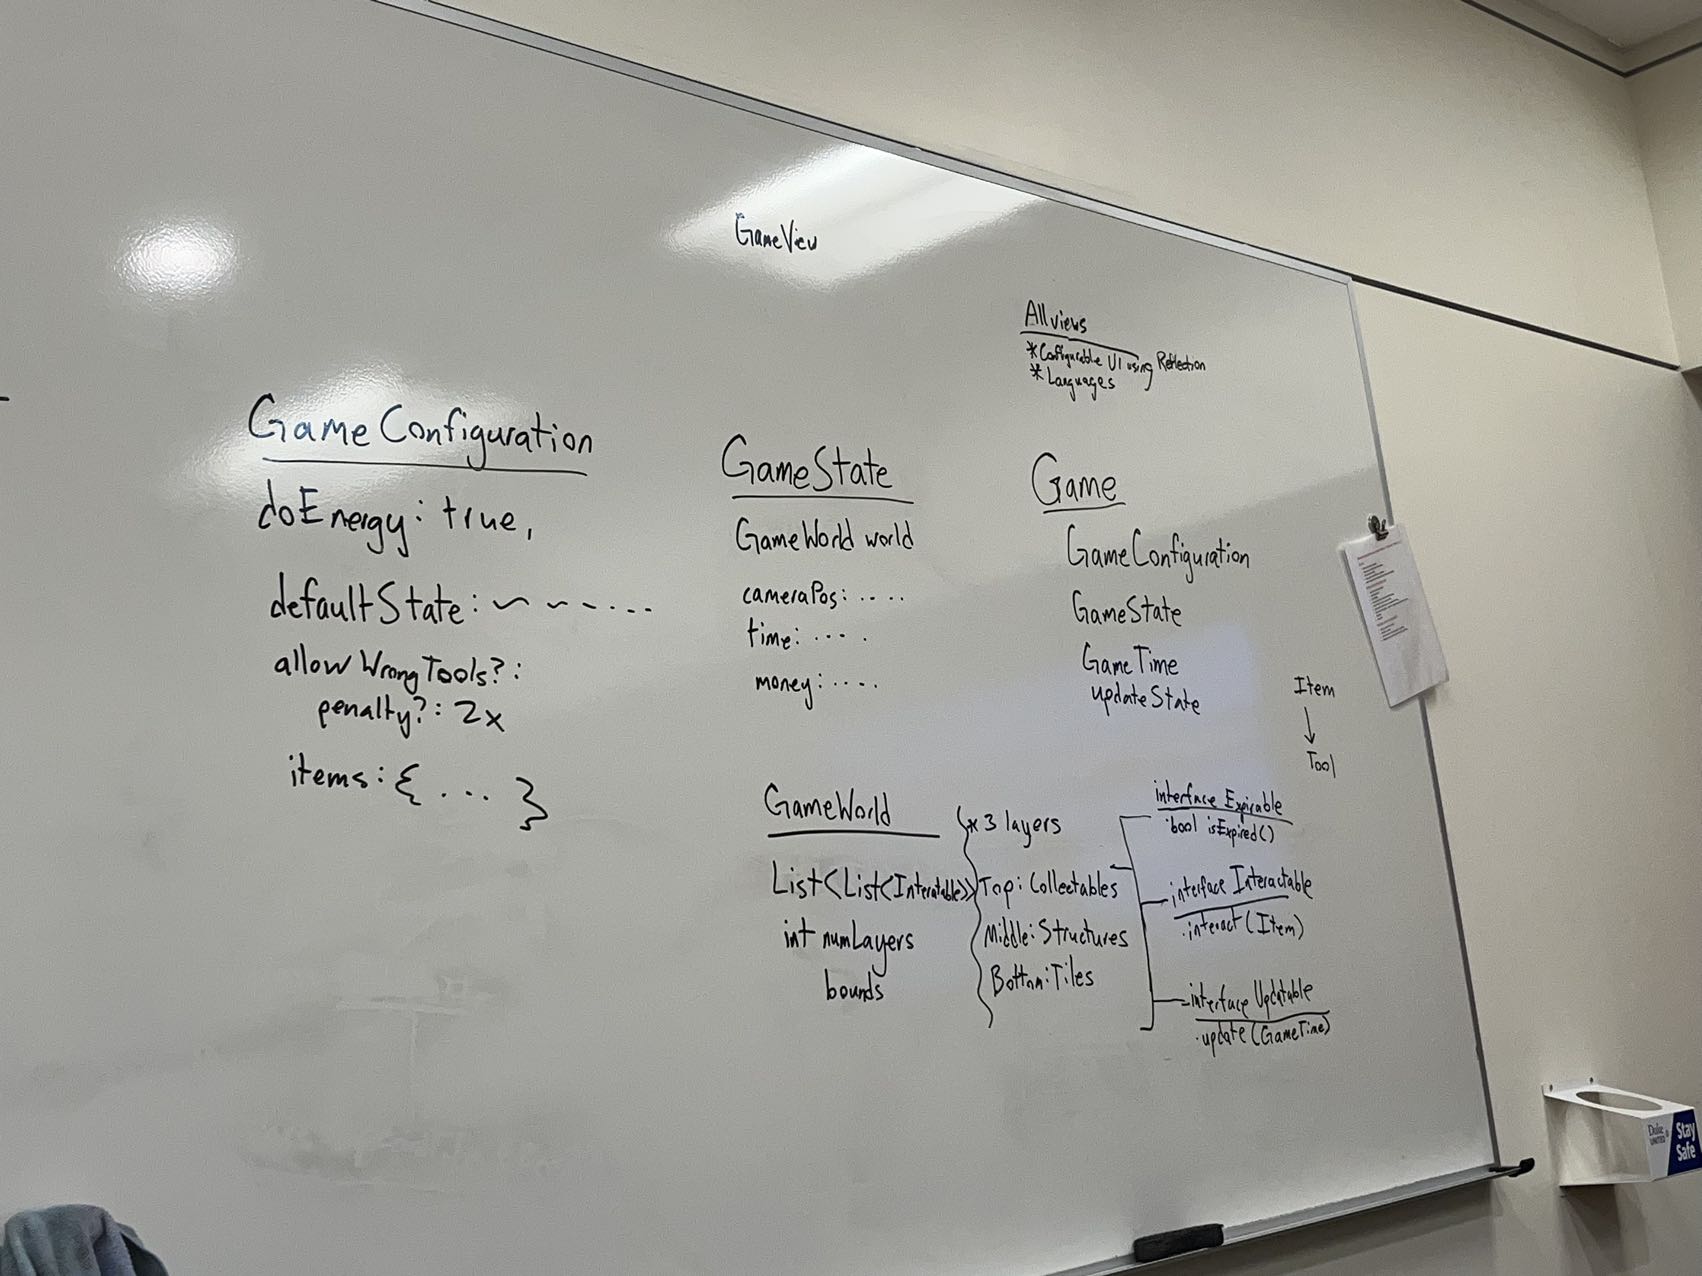 GameView
All views
*Configurable UI using Reflection
*Languages
GameConfiguration
doEnergy: true,
defaultState: ~ ~ ~ - . . .
allowWrongTools?:
penalty?: 2x
items: { ... }
GameState
GameWorld world
cameraPos: ....
time: ....
money: ....
Game
GameConfiguration
GameState
GameTime
updateState
Item
↓
Tool
GameWorld
List<List<Interatable>>
int numLayers
bounds
* 3 layers
Top: Collectables
Middle: Structures
Bottom: Tiles
interface Expirable
·bool isExpired()
interface Interactable
·interact(Item)
interface Updatable
·update(GameTime)
Duke
UNITED
Stay
Safe